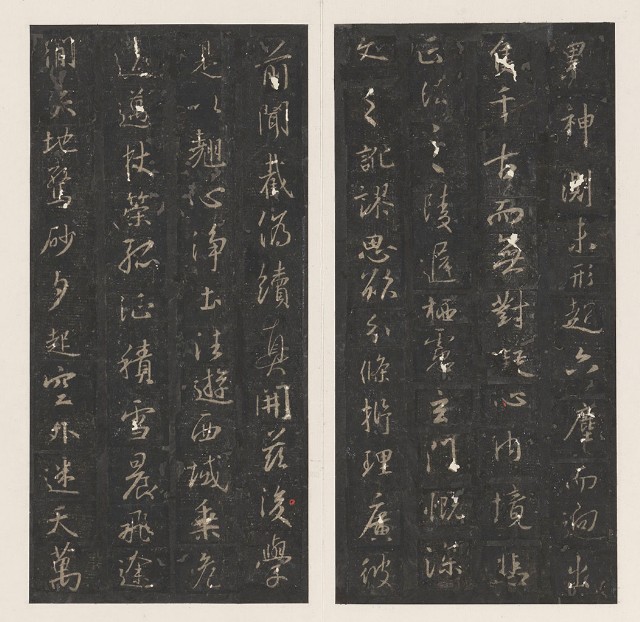 累神測未形超六塵而迥出
隻千古而無對凝心內境悲
正法之陵遲栖慮玄門慨深
文之訛謬思欲分條析理廣彼
前聞截偽續真開茲後學
是以翹心淨土往遊西域乘危
遠邁杖策孤征積雪晨飛途
間失地驚砂夕起空外迷天萬